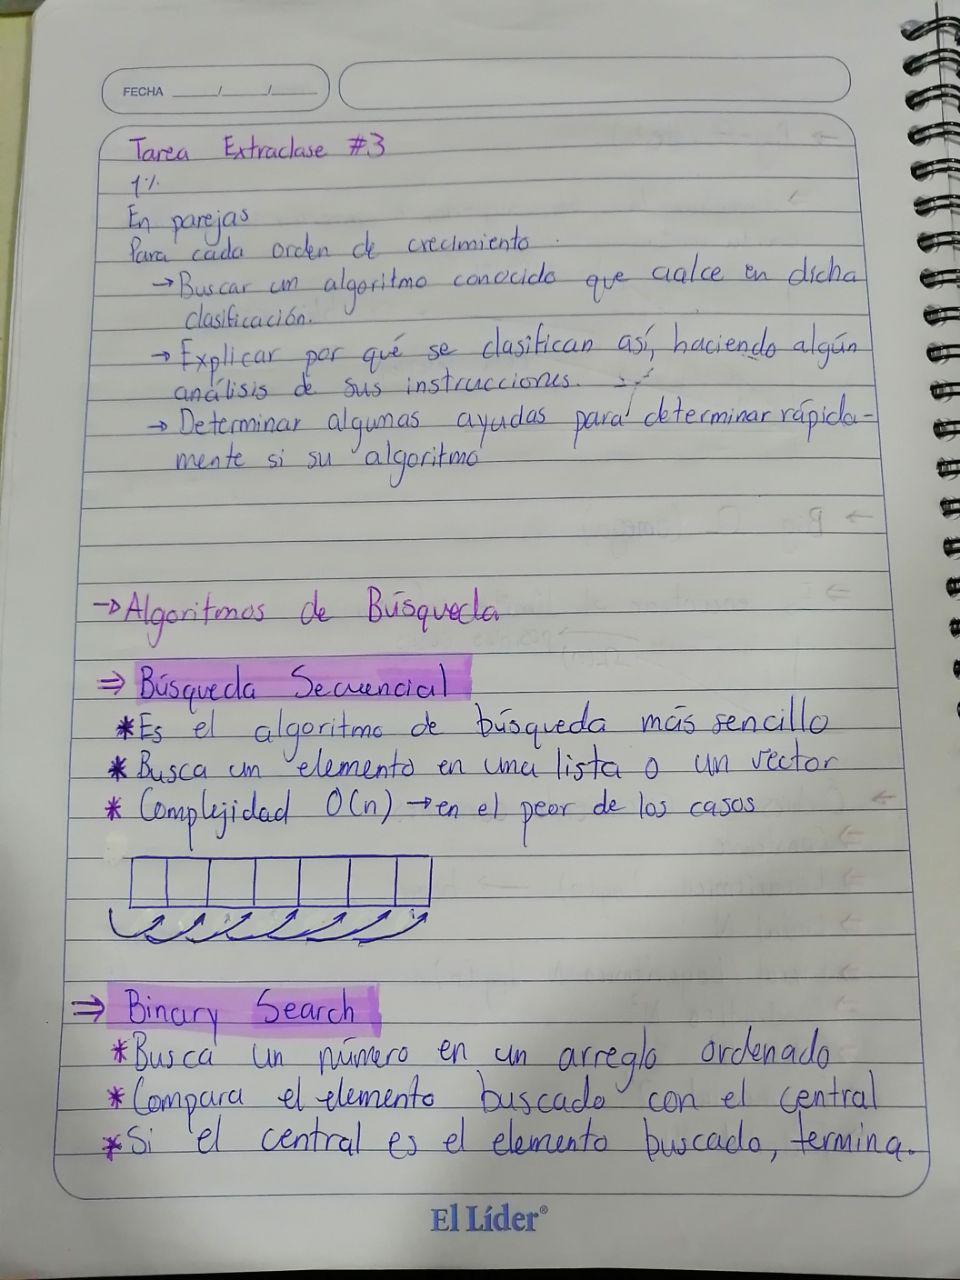 FECHA ____/____/____
Tarea Extraclase #3
1%
En parejas
Para cada orden de crecimiento
→Buscar un algoritmo conocido que calce en dicha
clasificación.
→ Explicar por qué se clasifican así, haciendo algún
análisis de sus instrucciones.
→ Determinar algunas ayudas para determinar rápida-
mente si su algoritmo
→Algoritmos de Búsqueda
⇒ Búsqueda Secuencial
*Es el algoritmo de búsqueda más sencillo
* Busca un elemento en una lista o un vector
* Complejidad O(n) → en el peor de los casos
⇒ Binary Search
*Busca un número en un arreglo ordenado
*Compara el elemento buscado con el central
*Si el central es el elemento buscado, termina.
El Líder®